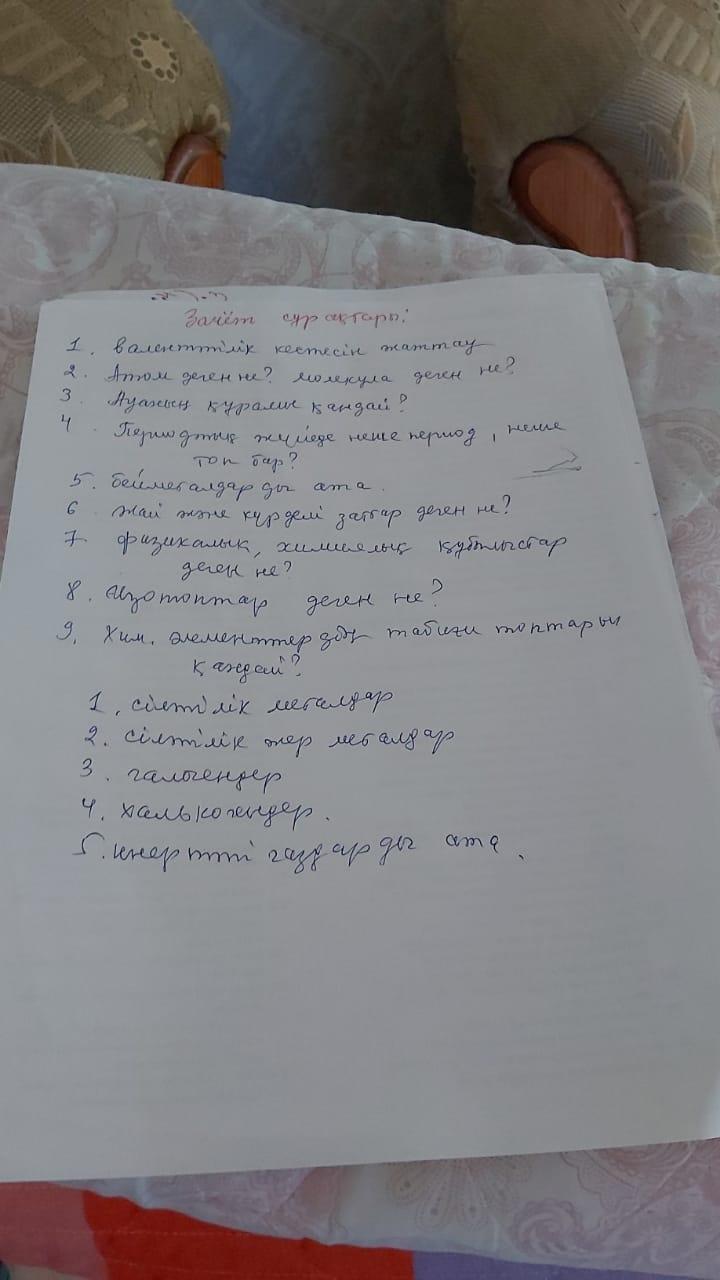 Зачёт сұрақтары:
1. Валенттілік кестесін жаттау
2. Атом деген не? молекула деген не?
3. Ауаның құрамы қандай?
4. Периодтық жүйеде неше период, неше
топ бар?
5. бейметалдарды ата.
6 жай және күрделі заттар деген не?
7 физикалық, химиялық құбылыстар
деген не?
8. Изотоптар деген не?
9. Хим. элементтердің табиғи топтары
қандай?
1. сілтілік металдар
2. сілтілік жер металдар
3. галогендер
4. халькогендер.
5. инертті газдарды ата.